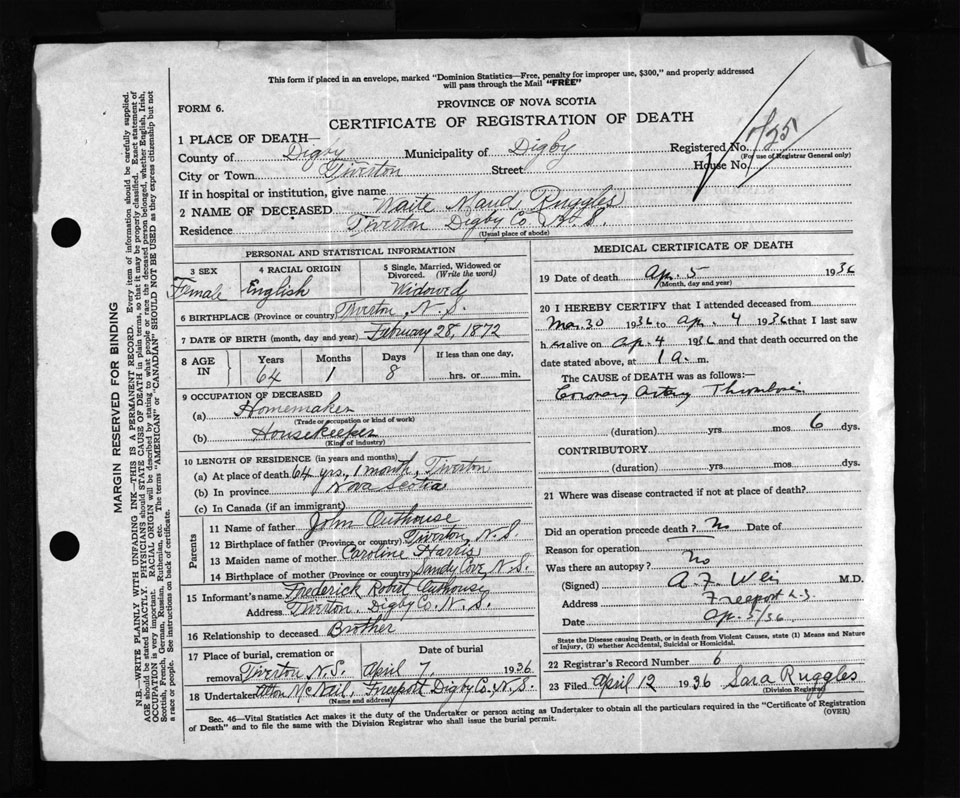 This form if placed in an envelope, marked "Dominion Statistics—Free, penalty for improper use, $300," and properly addressed
will pass through the Mail "FREE"
FORM 6.
PROVINCE OF NOVA SCOTIA
CERTIFICATE OF REGISTRATION OF DEATH
1 PLACE OF DEATH—
County of Digby Municipality of Digby Registered No.
(For use of Registrar General only)
City or Town Tiverton Street House No.
If in hospital or institution, give name
2 NAME OF DECEASED Waite Maud Ruggles
Residence Tiverton Digby Co. N. S.
(Usual place of abode)
PERSONAL AND STATISTICAL INFORMATION
3 SEX 4 RACIAL ORIGIN 5 Single, Married, Widowed or
Divorced. (Write the word)
Female English Widowed
6 BIRTHPLACE (Province or country) Tiverton, N. S.
7 DATE OF BIRTH (month, day and year) February 28, 1872
8 AGE IN Years Months Days If less than one day,
64 1 8 hrs. or min.
9 OCCUPATION OF DECEASED
(a) Homemaker
(Trade or occupation or kind of work)
(b) Housekeeper
(Kind of industry)
10 LENGTH OF RESIDENCE (in years and months)
(a) At place of death 64 yrs, 1 month, Tiverton
(b) In province Nova Scotia
(c) In Canada (if an immigrant)
Parents
11 Name of father John Outhouse
12 Birthplace of father (Province or country) Tiverton, N. S.
13 Maiden name of mother Caroline Harris
14 Birthplace of mother (Province or country) Sandy Cove, N. S.
15 Informant's name Frederick Robert Outhouse
Address Tiverton, Digby Co. N. S.
16 Relationship to deceased Brother
17 Place of burial, cremation or Date of burial
removal Tiverton N.S. April 7 1936
18 Undertaker Alton McNeil, Freeport Digby Co. N. S.
(Name and address)
MEDICAL CERTIFICATE OF DEATH
19 Date of death Ap. 5 1936
(Month, day and year)
20 I HEREBY CERTIFY that I attended deceased from
Mar. 30 1936 to Ap. 4 1936 that I last saw
h er alive on Ap. 4 1936 and that death occurred on the
date stated above, at 1 a. m.
The CAUSE OF DEATH was as follows:—
Coronary Artery Thrombosis
(duration) yrs. mos. 6 dys.
CONTRIBUTORY
(duration) yrs. mos. dys.
21 Where was disease contracted if not at place of death?
Did an operation precede death? No Date of
Reason for operation
Was there an autopsy? No
(Signed) A. F. Weir M.D.
Address Freeport N.S.
Date Ap. 5/36
State the Disease causing Death, or in death from Violent Causes, state (1) Means and Nature
of Injury, (2) whether Accidental, Suicidal or Homicidal.
22 Registrar's Record Number 6
23 Filed April 12 1936 Sara Ruggles
(Division Registrar)
Sec. 46—Vital Statistics Act makes it the duty of the Undertaker or person acting as Undertaker to obtain all the particulars required in the "Certificate of Registration
of Death" and to file the same with the Division Registrar who shall issue the burial permit.
(OVER)
MARGIN RESERVED FOR BINDING
N.B.—WRITE PLAINLY WITH UNFADING INK—THIS IS A PERMANENT RECORD. Every item of information should be carefully supplied.
AGE should be stated EXACTLY. PHYSICIANS should STATE CAUSE OF DEATH in plain terms, so that it may be properly classified. Exact statement of
OCCUPATION is very important. RACIAL ORIGIN will be described by stating to what people or race the deceased person belonged, whether English, Irish,
Scottish, French, German, Russian, Ruthenian, etc. The terms "AMERICAN" or "CANADIAN" SHOULD NOT BE USED as they express citizenship but not
a race or people. See instructions on back of certificate.